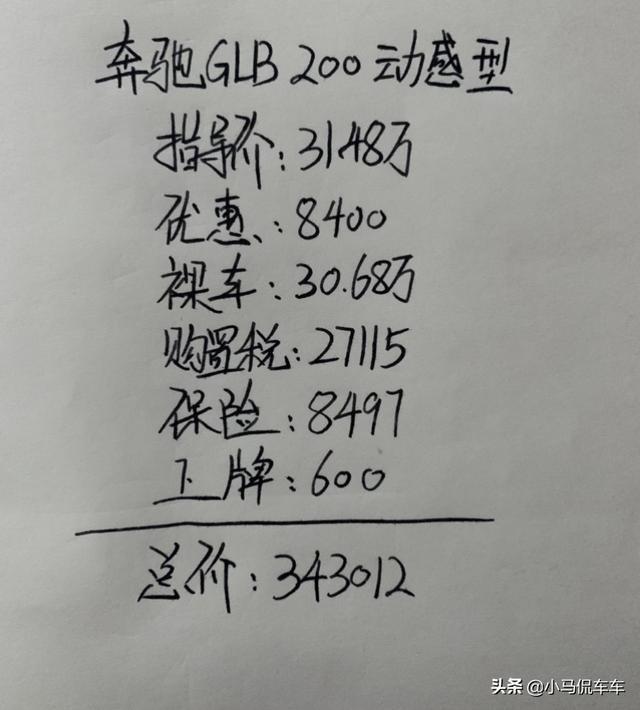 奔驰GLB 200动感型
指导价:31.48万
优惠:8400
裸车:30.68万
购置税:27115
保险:8497
上牌:600
总价:343012
头条 @小马侃车车